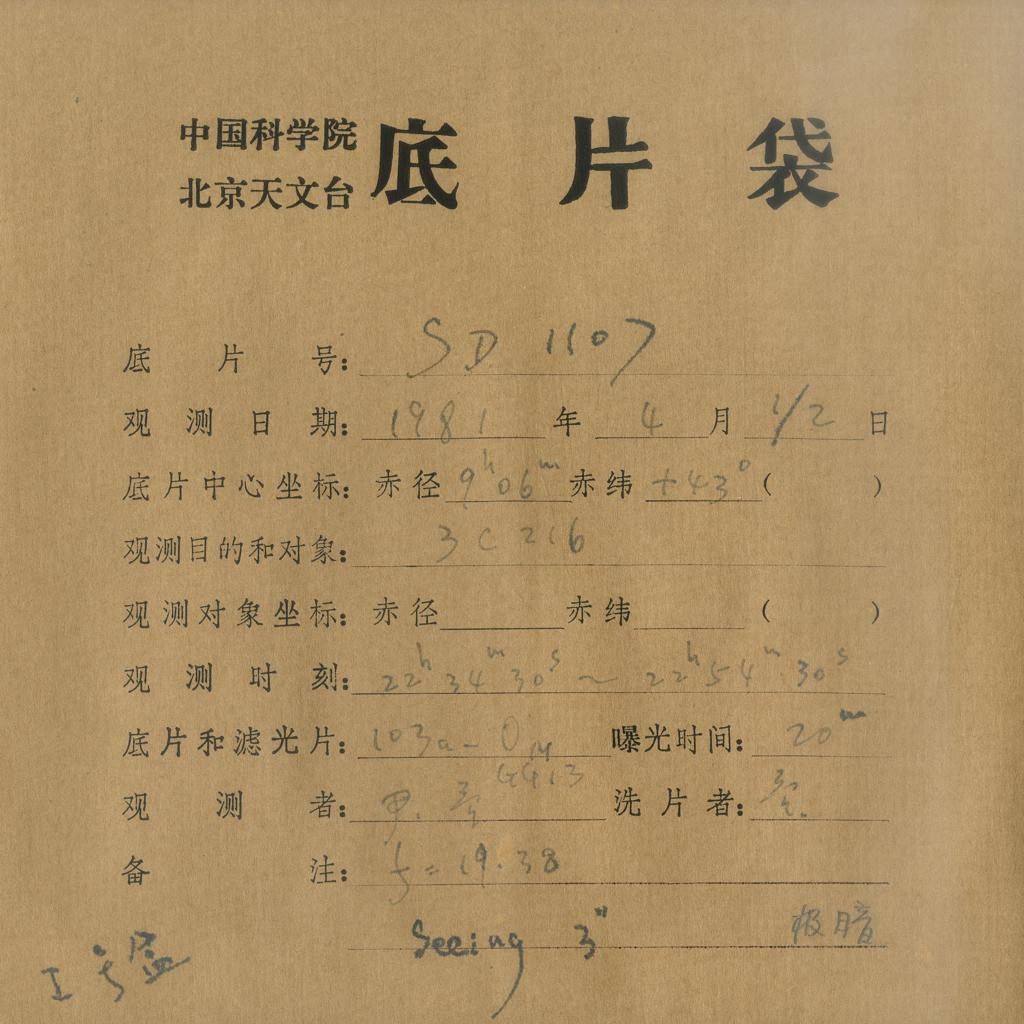 中国科学院
北京天文台
底片袋
底片号: SD 1107
观测日期: 1981年4月1/2日
底片中心坐标: 赤径 9h06m 赤纬 +43°( )
观测目的和对象: 3C 216
观测对象坐标: 赤径 赤纬 ( )
观测时刻: 22h34m30s ~ 22h54m30s
底片和滤光片: 103a-O 曝光时间: 20m
GG13
观测者: 洗片者:
备注: f=19.38
Seeing 3" 极暗